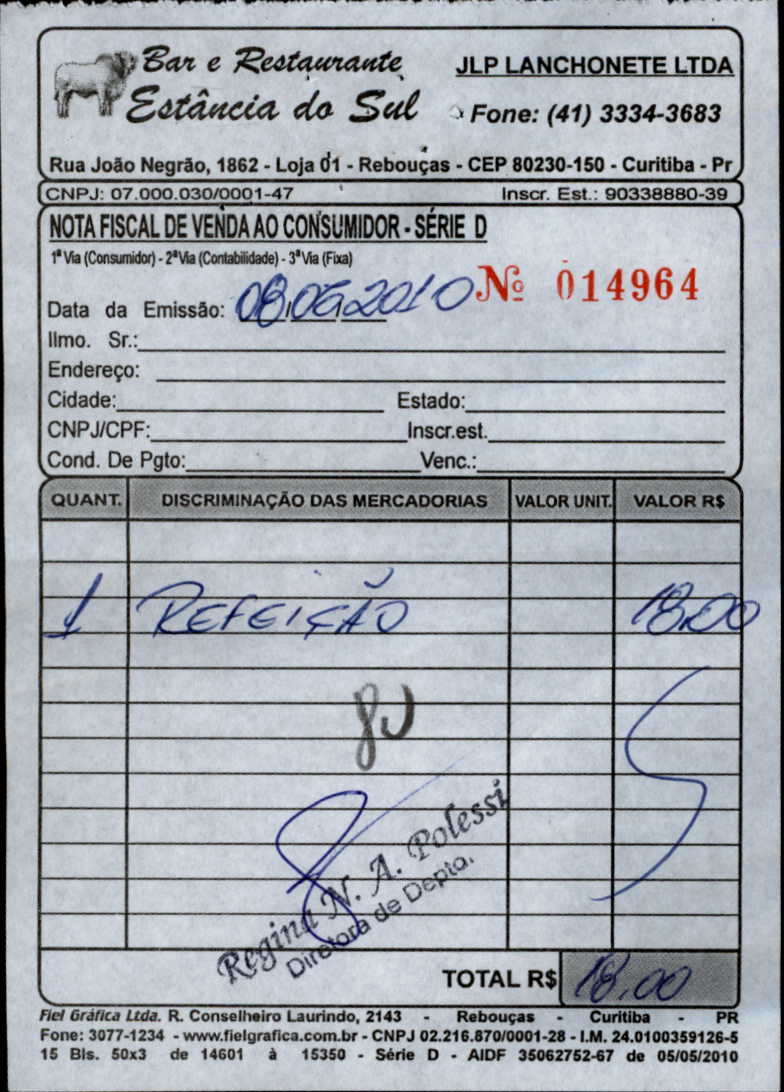 Bar e Restaurante
Estância do Sul
JLP LANCHONETE LTDA
Fone: (41) 3334-3683
Rua João Negrão, 1862 - Loja 01 - Rebouças - CEP 80230-150 - Curitiba - Pr
CNPJ: 07.000.030/0001-47 Inscr. Est.: 90338880-39
NOTA FISCAL DE VENDA AO CONSUMIDOR - SÉRIE D
1ª Via (Consumidor) - 2ª Via (Contabilidade) - 3ª Via (Fixa)
Nº 014964
Data da Emissão: 08/06/2010
Ilmo. Sr.:
Endereço:
Cidade: Estado:
CNPJ/CPF: Inscr.est.
Cond. De Pgto: Venc.:
QUANT. DISCRIMINAÇÃO DAS MERCADORIAS VALOR UNIT. VALOR R$
1 REFEIÇÃO 18,00
Regina N. A. Polessi
Diretora de Depto.
TOTAL R$ 18,00
Fiel Gráfica Ltda. R. Conselheiro Laurindo, 2143 - Rebouças - Curitiba - PR
Fone: 3077-1234 - www.fielgrafica.com.br - CNPJ 02.216.870/0001-28 - I.M. 24.0100359126-5
15 Bls. 50x3 de 14601 à 15350 - Série D - AIDF 35062752-67 de 05/05/2010